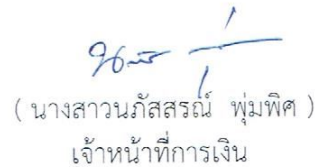 ( นางสาวนภัสสรณ์ พุ่มพิศ )
เจ้าหน้าที่การเงิน